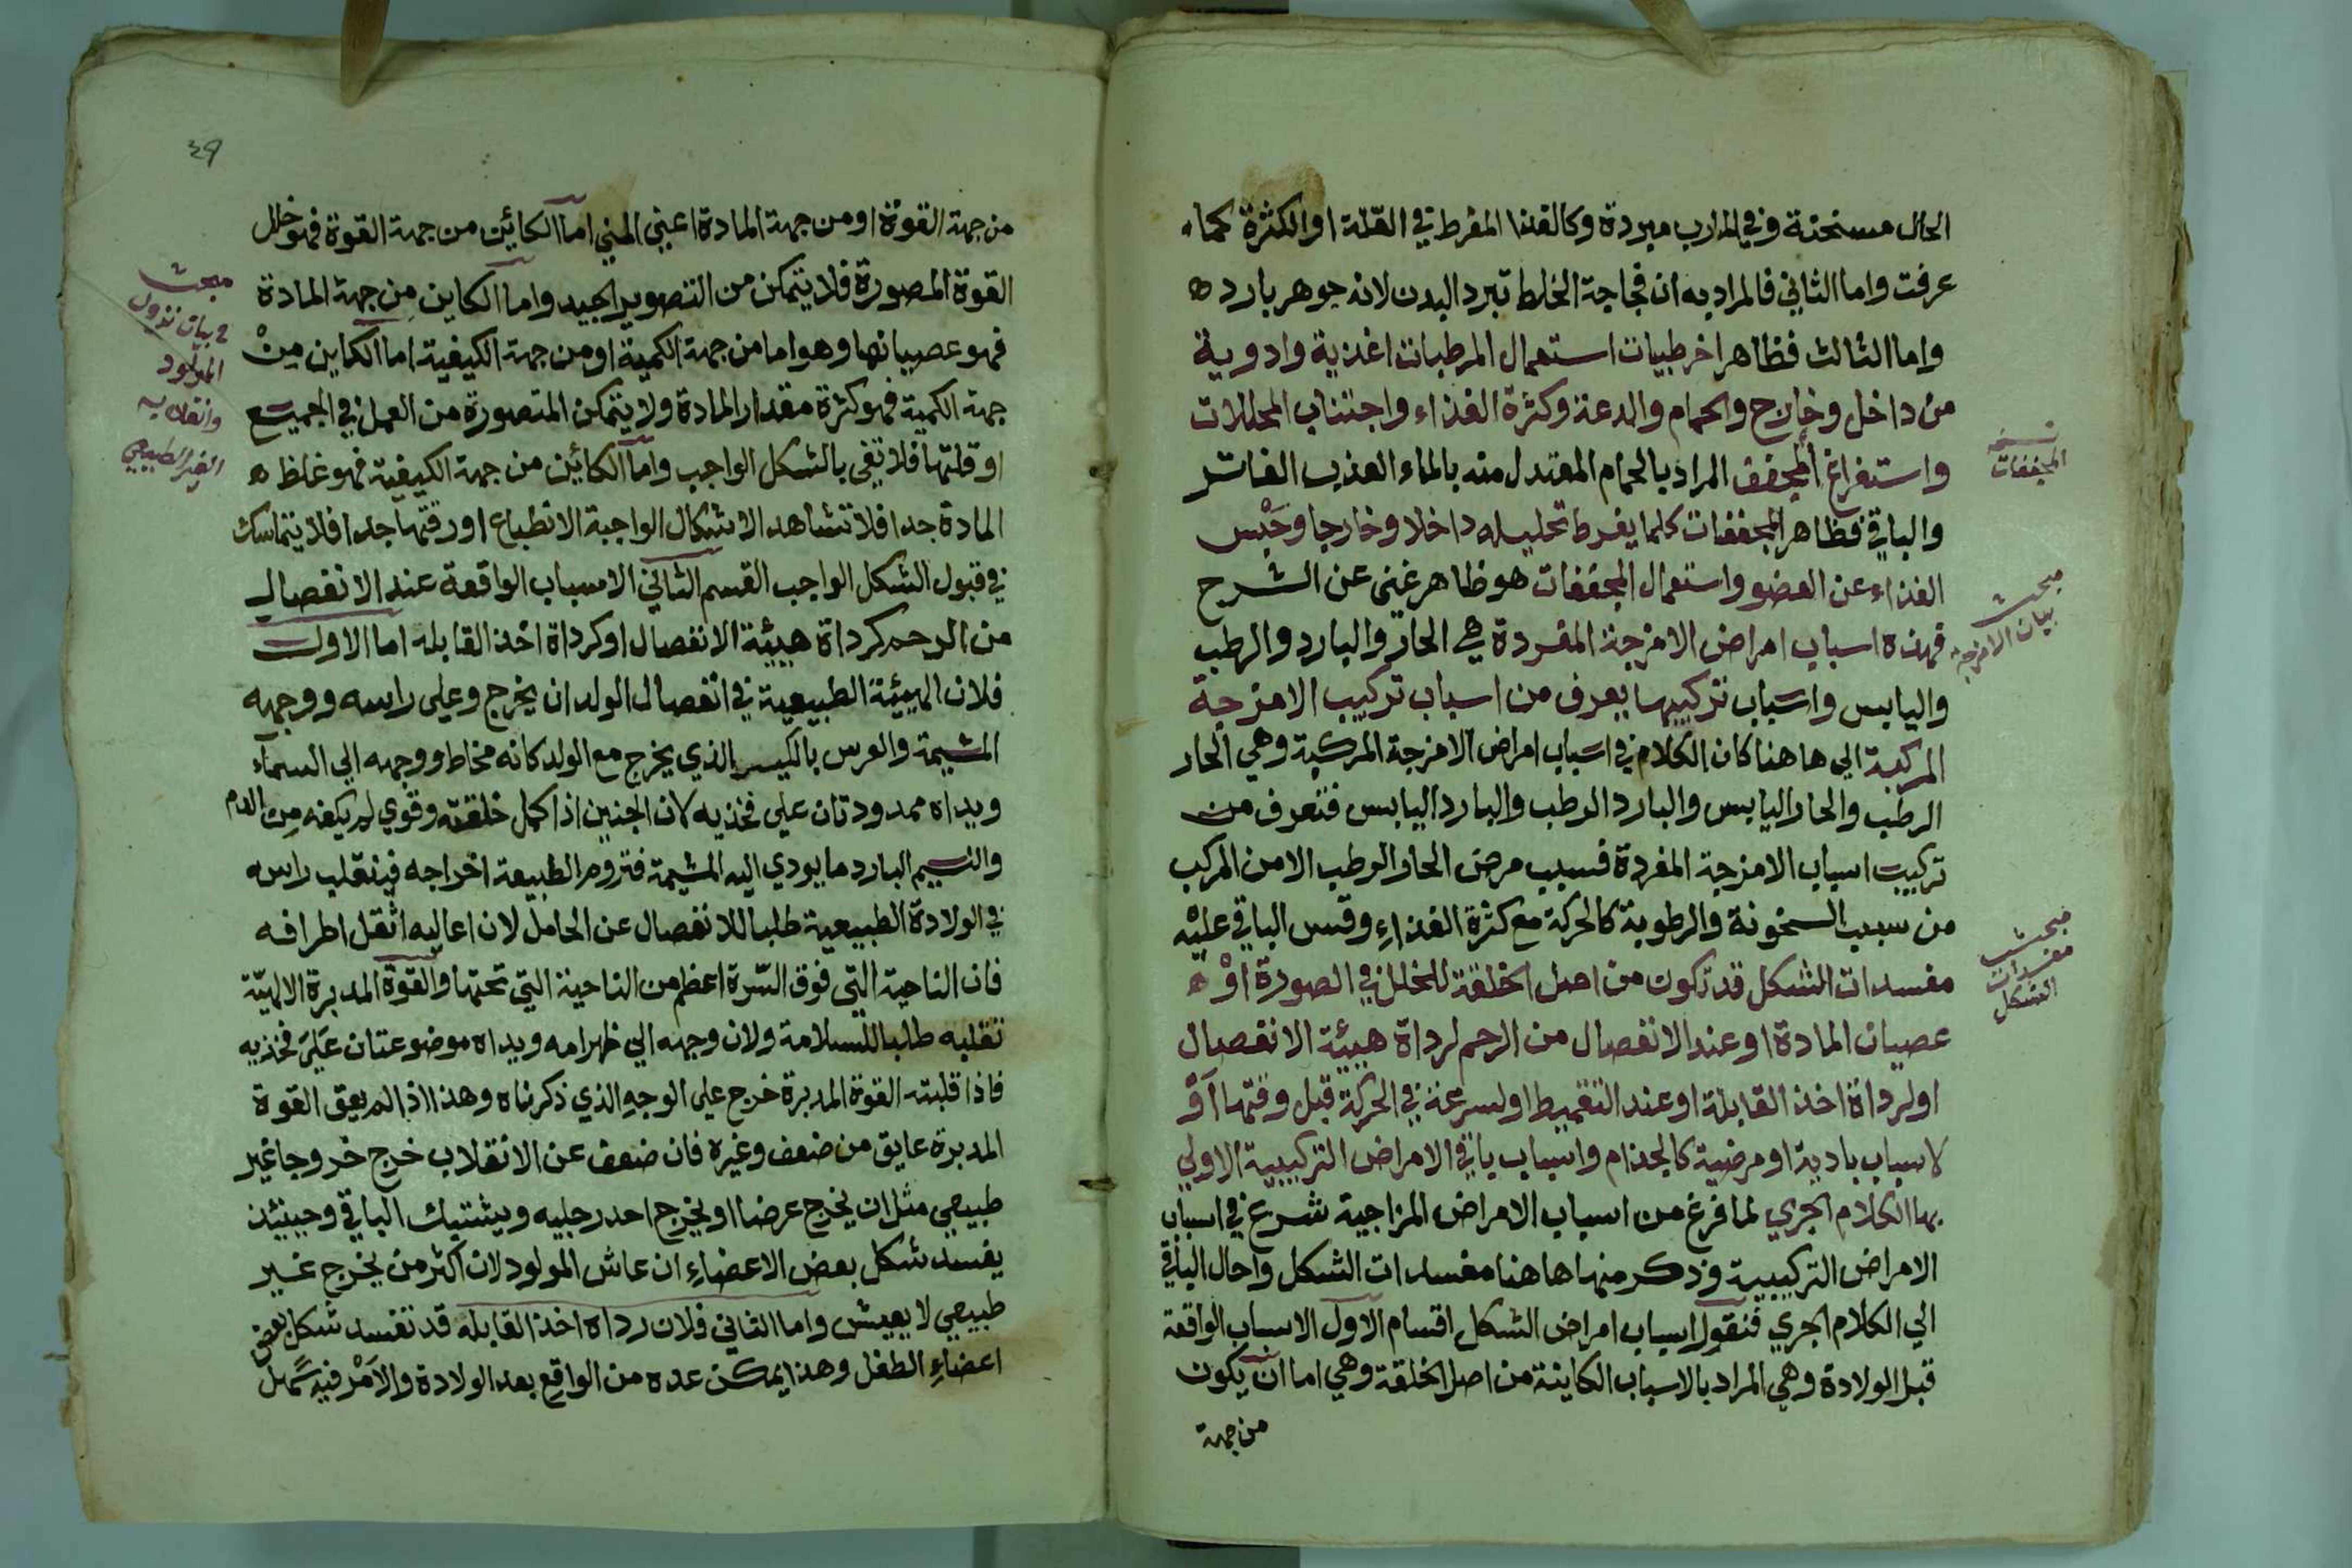 الحال مسخنة وفي المارب مبردة وكالغذا المفرط في القلة او الكثرة كما
عرفت واما الثاني فالمراد به ان فجاجة الخلط تبرد البدن لانه جوهر بارد ه
واما الثالث فظاهر اخر طبيات استعمال المرطبات اغذية وادوية
من داخل وخارج والحمام والدعة وكثرة الغذاء واجتناب المحللات
واستفراغ المجفف المراد بالحمام المعتدل منه بالماء العذب الفاتر
والباقي فظاهر المجففات كلما يفرط تحليله داخلا وخارجا وحبس
الغذاء عن العضو واستعمال المجففات هو ظاهر غني عن الشرح
فهذه اسباب امراض الامزجة المفردة هي الحار والبارد والرطب
واليابس واسباب تركيبها يعرف من اسباب تركيب الامزجة
المركبة الي هاهنا كان الكلام في اسباب امراض الامزجة المركبة وهي الحار
الرطب والحار اليابس والبارد الرطب والبارد اليابس فتعرف من
تركيب اسباب الامزجة المفردة فسبب مرض الحار الرطب الامن المركب
من سبب السخونة والرطوبة كالحركة مع كثرة الغذاء وقس الباقي عليه
مفسدات الشكل قد تكون من اصل الخلقة للخلل في الصورة او ه
عصيان المادة او عند الانفصال من الرحم لرداة هيئة الانفصال
او لرداة اخذ القابلة او عند التقميط او لسرعة في الحركة قبل وقتها او
لاسباب بادية او مرضية كالجذام واسباب باقي الامراض التركيبية الاولي
بها الكلام الجزي لما فرغ من اسباب الامراض المزاجية شرع في اسباب
الامراض التركيبية وذكر منها هاهنا مفسدات الشكل واحال الباقي
الي الكلام الجزي فنقول اسباب امراض الشكل اقسام الاول الاسباب الواقعة
قبل الولادة وهي المراد بالاسباب الكاينة من اصل الخلقة وهي اما ان يكون
من جهة
نسخه
المجففات
مبحث
بيان الامزجة
مبحث
مفسدات
الشكل
39
من جهة القوة او من جهة المادة اعني المني اما الكائين من جهة القوة فهو خلل
القوة المصورة فلا يتمكن من التصوير الجيد واما الكاين من جهة المادة
فهو عصيانها وهو اما من جهة الكمية او من جهة الكيفية اما الكاين من
جهة الكمية فهو كثرة مقدار المادة ولا يتمكن المتصورة من العمل في الجميع
او قلتها فلا تفي بالشكل الواجب واما الكائين من جهة الكيفية فهو غلظ ه
المادة جدا فلا تشاهد الاشكال الواجبة الانطباع او رقتها جدا فلا يتماسك
في قبول الشكل الواجب القسم الثاني الاسباب الواقعة عند الانفصال
من الرحم كرداة هيئة الانفصال او كرداة اخذ القابله اما الاول
فلان الهيئة الطبيعية في انفصال الولد ان يخرج وعلى راسه ووجهه
المشيمة والغرس بالكيسر الذي يخرج مع الولد كانه مخاط ووجهه الي السماء
ويداه ممدودتان علي فخذيه لان الجنين اذا كمل خلقته وقوي لم يكفه من الدم
والنسيم البارد ما يودي اليه المشيمة فتروم الطبيعة اخراجه فينقلب راسه
في الولادة الطبيعية طلبا للانفصال عن الحامل لان اعاليه اثقل اطرافه
فان الناحية التي فوق السرة اعظم من الناحية التي تحتها والقوة المدبرة الالهية
تقلبه طلبا للسلامة ولان وجهه الي ظهر امه ويداه موضوعتان علي فخذيه
فاذا قلبته القوة المدبرة خرج علي الوجه الذي ذكرناه وهذا اذا لم يعق القوة
المدبرة عايق من ضعف وغيره فان ضعف عن الانقلاب خرج خروجا غير
طبيعي مثل ان يخرج عرضا او يخرج احد رجليه ويشتبك الباقي وحينئذ
يفسد شكل بعض الاعضاء ان عاش المولود لان اكثر من يخرج غير
طبيعي لا يعيش واما الثاني فلان رداه اخذ القابله قد تفسد شكل بعض
اعضاء الطفل وهذا يمكن عده من الواقع بعد الولادة والامر فيه سهل
مبحث
في بيان نزول
المولود
وانقلابه
الغير الطبيعي